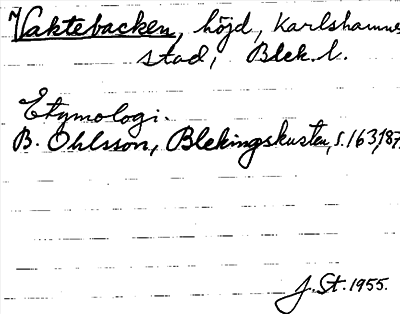 Vaktebacken, höjd, Karlshamns
stad, Blek. l.
Etymologi.
B. Ohlsson, Blekingskusten, s. 163, 187
J. St. 1955.